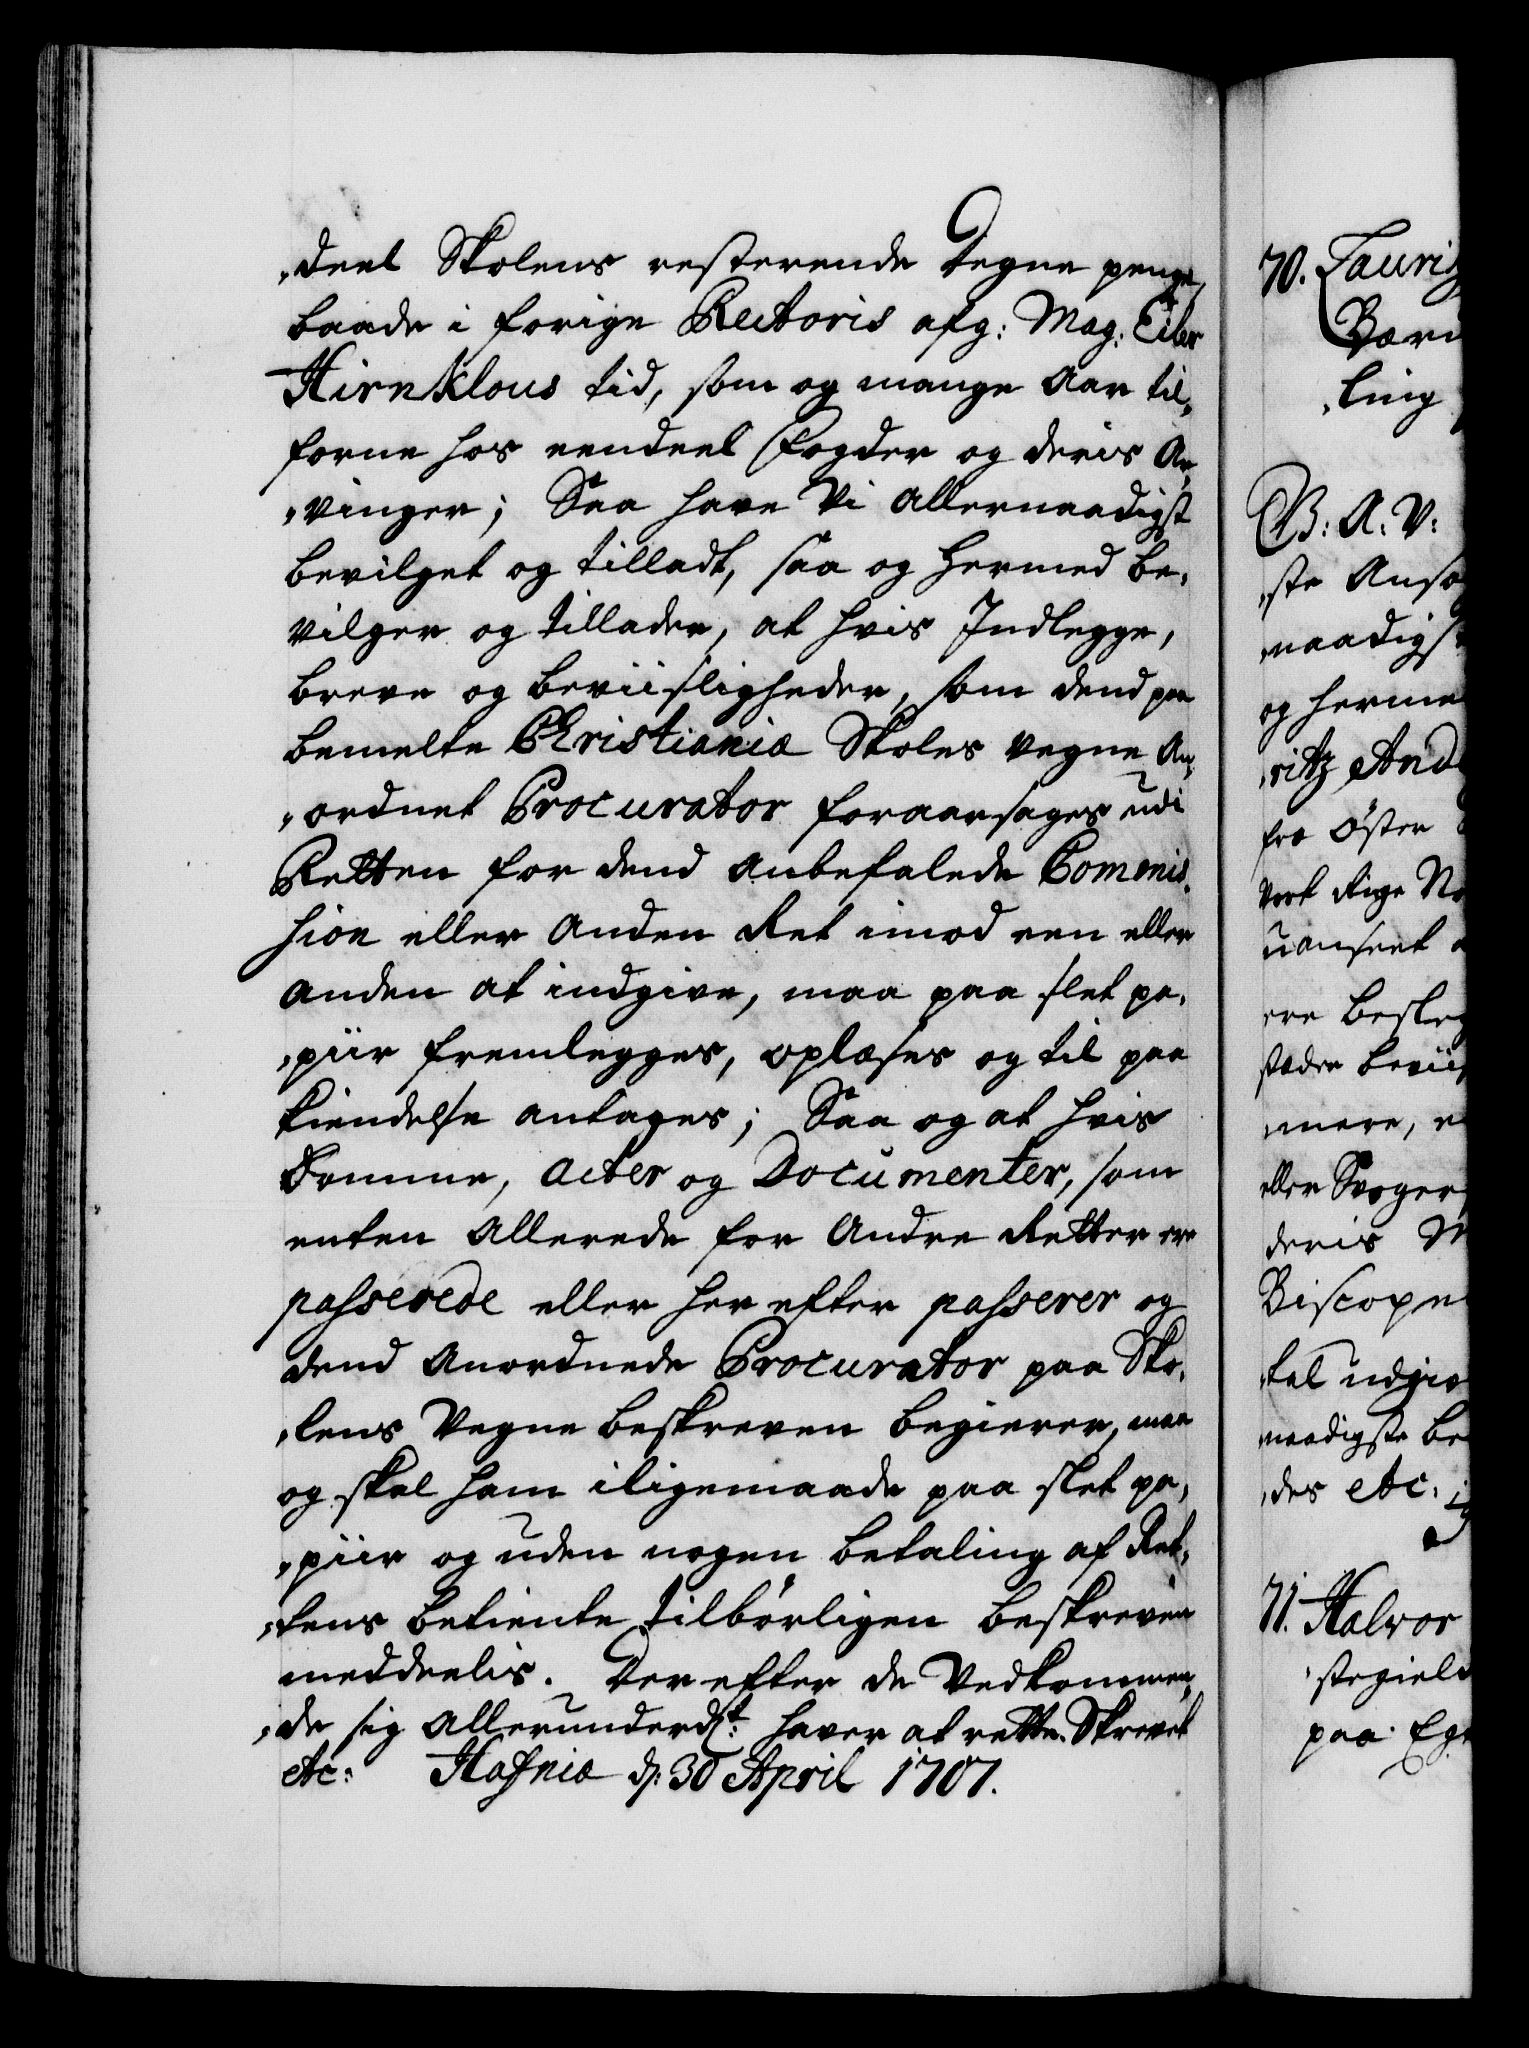 „deel Skolens resterende Degne penge,
baade i forige Rectoris afg: Mag: Eiler
HirnKlous tid, som og mange Aar til,
forne hos eendeel Fogder og deris Ar„
„vinger; Saa have Vi allernaadigst
bevilget og tilladt, saa og hermed be„
vilger og tillader, at hvis Indlegge,
breve og beviisligheder, som dend paa
bemelte Christianiæ Skoles vegne An„
„ordnet Procurator foraarsages udi
Retten for dend anbefalede Commis„
sion eller anden Ret imod een eller
anden at indgive, maa paa slet pa„
„piir fremlegges, oplæses og til paa
kiendelse antages; Saa og at hvis
Domme, Acter og Documenter, som
enten allerede for andre Retter ere
passerede eller her efter passerer og
dend anordnede Procurator paa Sko„
„lens Vegne beskreven begierer, maa
og skal ham iligemaade paa slet pa„
„piir og uden nogen betaling af Ret„
„tens betiente tilbørligen beskreven
meddeelis. Der efter de Vedkommen„
„de sig allerunderdst: haver at rette. Skrevet
etc: Hafniæ d: 30 April 1707.
70. Lauritz
„ling
B: A. V:
„ste Anso
naadigst
og herme
„ritz And
fra Øster
vort Rige No
uanseet
ere besleg
stædse beviis
mere, e
eller Svoger
deris M
Biscopen
„tel udgiv
naadigste be
„des etc:
71. Halvor
„stegield
paa Eg